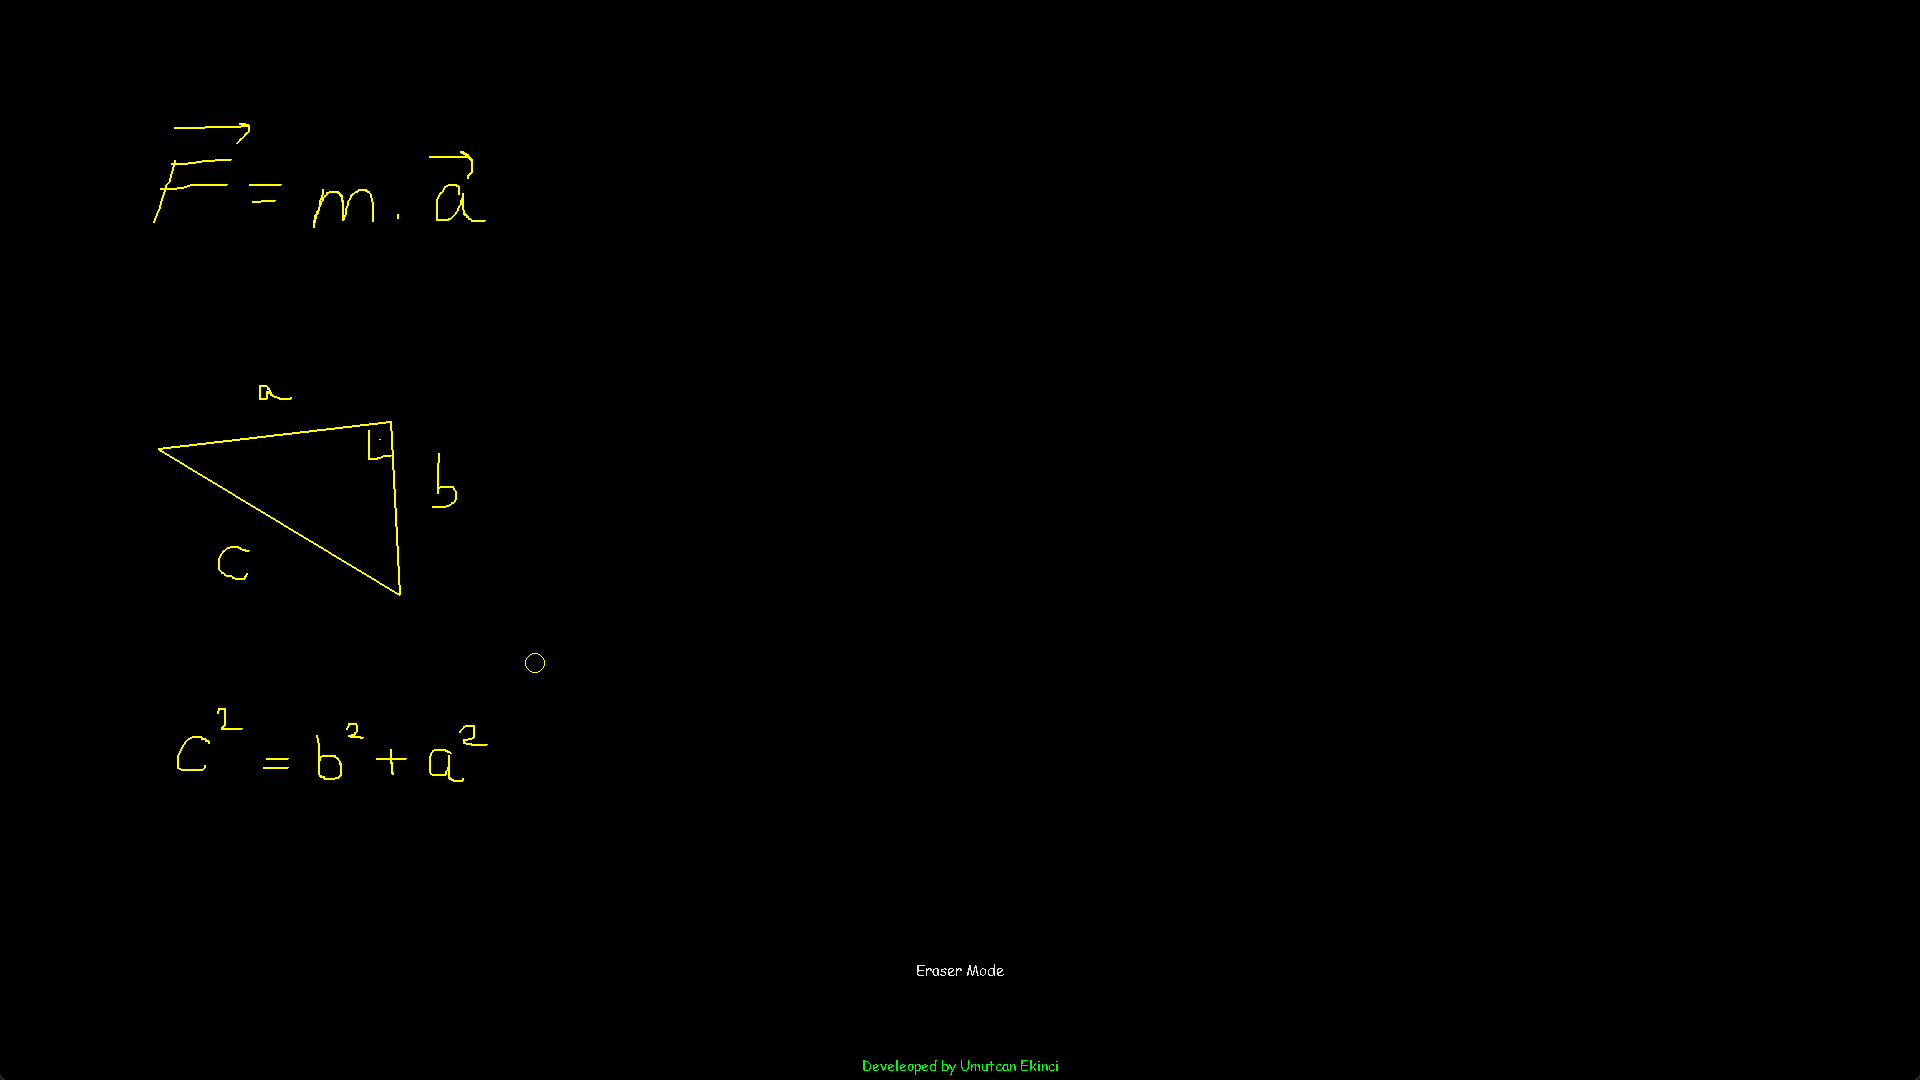 F = m . a
a
b
c
c² = b² + a²
Eraser Mode
Develeoped by Umutcan Ekinci